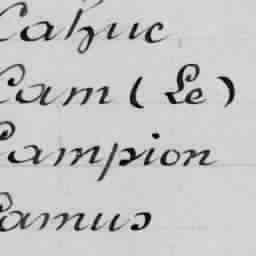 Cahuc
Cam (Le)
Campion
Camus